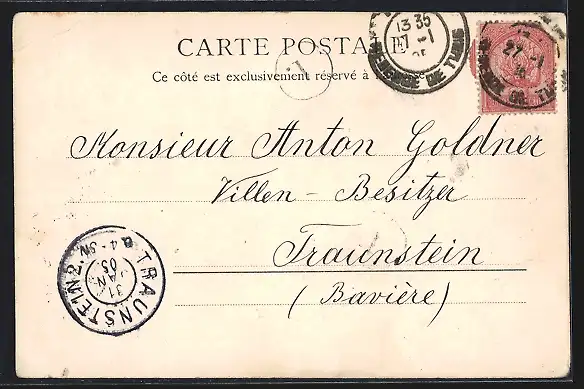 CARTE POSTALE
Ce côté est exclusivement réservé à
13 35
27 -1
DE TUNIS
27 -1
DE TUNIS
Monsieur Anton Goldner
Villen - Besitzer
Traunstein
(Bavière)
TRAUNSTEIN 2.
4-5N.
31
JAN
05